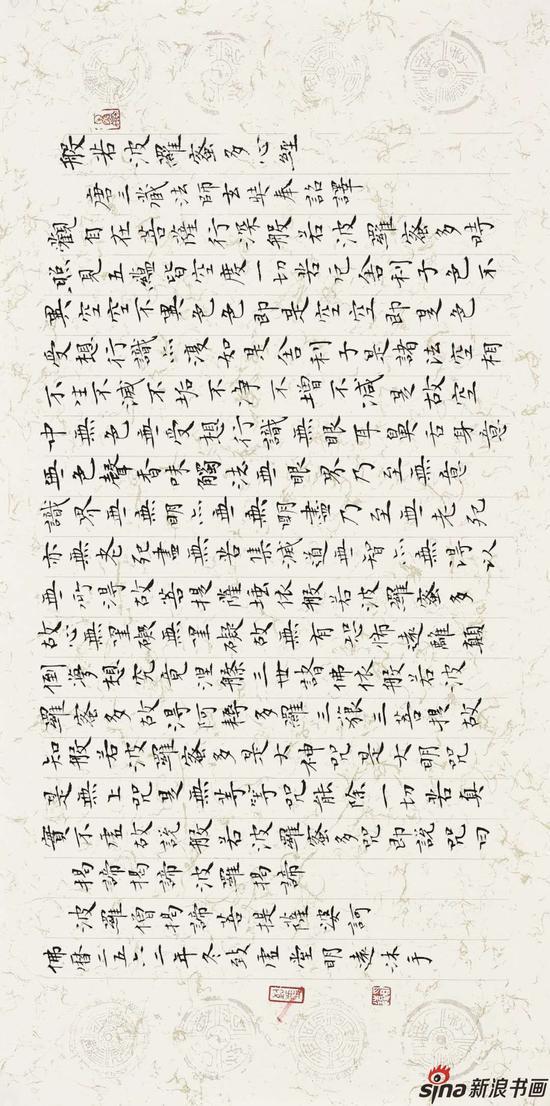 般若波羅蜜多心經
唐三藏法師玄奘奉詔譯
觀自在菩薩行深般若波羅蜜多時
照見五蘊皆空度一切苦厄舍利子色不
異空空不異色色即是空空即是色
受想行識亦復如是舍利子是諸法空相
不生不滅不垢不淨不增不減是故空
中無色無受想行識無眼耳鼻舌身意
無色聲香味觸法無眼界乃至無意
識界無無明亦無無明盡乃至無老死
亦無老死盡無苦集滅道無智亦無得以
無所得故菩提薩埵依般若波羅蜜多
故心無罣礙無罣礙故無有恐怖遠離顛
倒夢想究竟涅槃三世諸佛依般若波
羅蜜多故得阿耨多羅三藐三菩提故
知般若波羅蜜多是大神咒是大明咒
是無上咒是無等等咒能除一切苦真
實不虛故說般若波羅蜜多咒即說咒曰
揭諦揭諦波羅揭諦
波羅僧揭諦菩提薩婆訶
佛曆二五六二年冬致虛堂明遠沐手
sina新浪书画